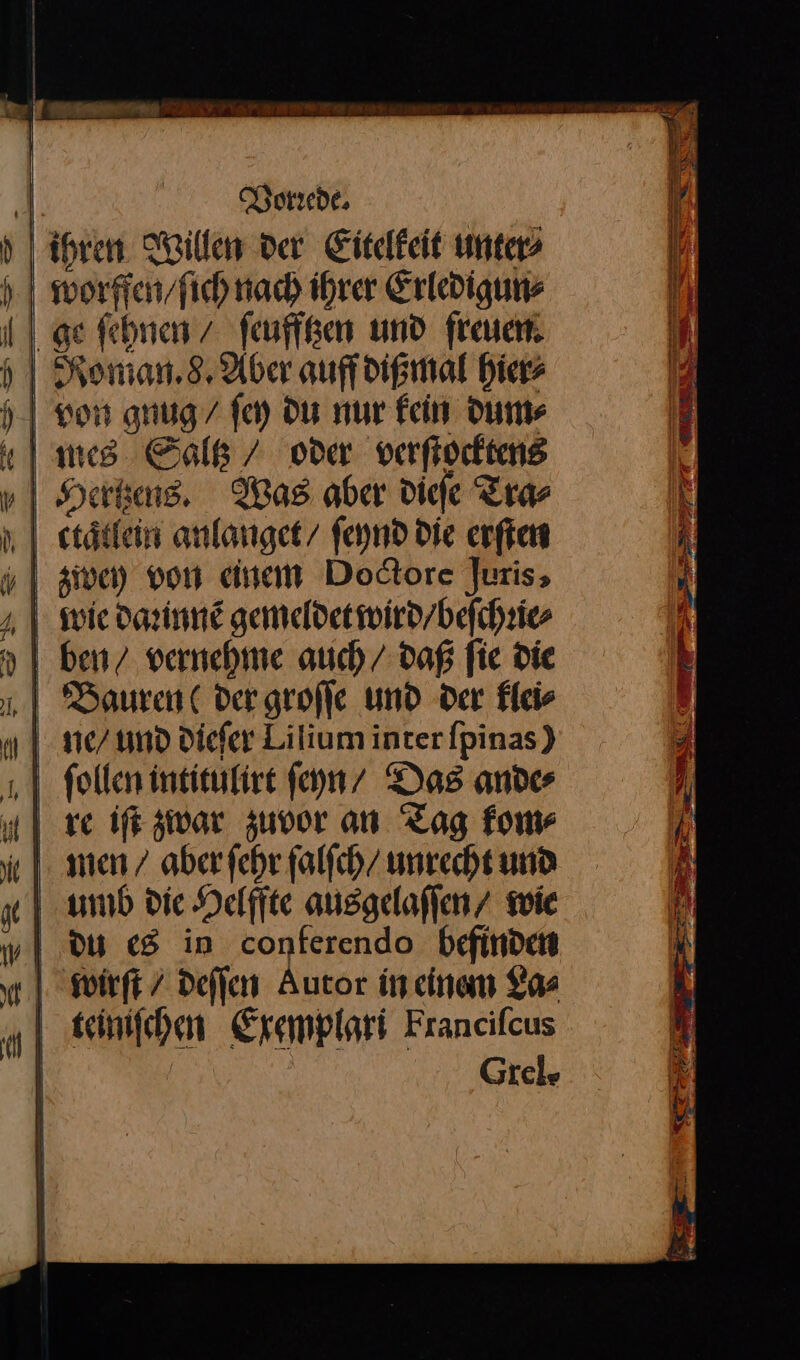 Vorꝛede.
ihren Willen der Eitelkeit unter⸗
worffen/ ſich nach ihrer Erledigun⸗
ge ſehnen / ſeufftzen und freuen.
Roman. 8. Aber auff dißmal hier⸗
von gnug / ſey du nur kein dum⸗
mes Saltz / oder verſtocktens
Hertzens. Was aber dieſe Tra⸗
ctaͤtlein anlanget / ſeynd die erſten
zwey von einem Doctore Juris,
wie daꝛinnẽ gemeldet wird/ beſchꝛie⸗
ben / vernehme auch / daß ſie die
Bauren ( der groſſe und der klei⸗
ne/ und dieſer Lilium inter ſpinas )
ſollen intitulirt ſeyn / Das ande⸗
re iſt zwar zuvor an Tag kom⸗
men / aber ſehr falſch/ unrecht und
umb die Helffte ausgelaſſen / wie
du es in conferendo befinden
wirſt / deſſen Autor in einem La⸗
teiniſchen Exemplari Franciſcus
Grel-